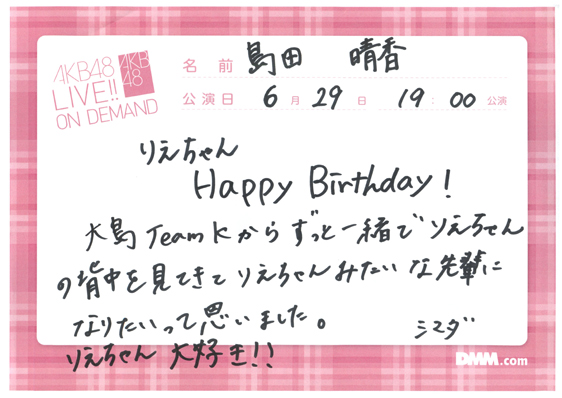 AKB48
LIVE!!
ON DEMAND
AKB
48
名前 島田 晴香
公演日 6月29日 19:00公演
りえちゃん
Happy Birthday!
大島TeamKからずっと一緒でりえちゃん
の背中を見てきてりえちゃんみたいな先輩に
なりたいって思いました。 シマダ
りえちゃん 大好き!!
DMM.com